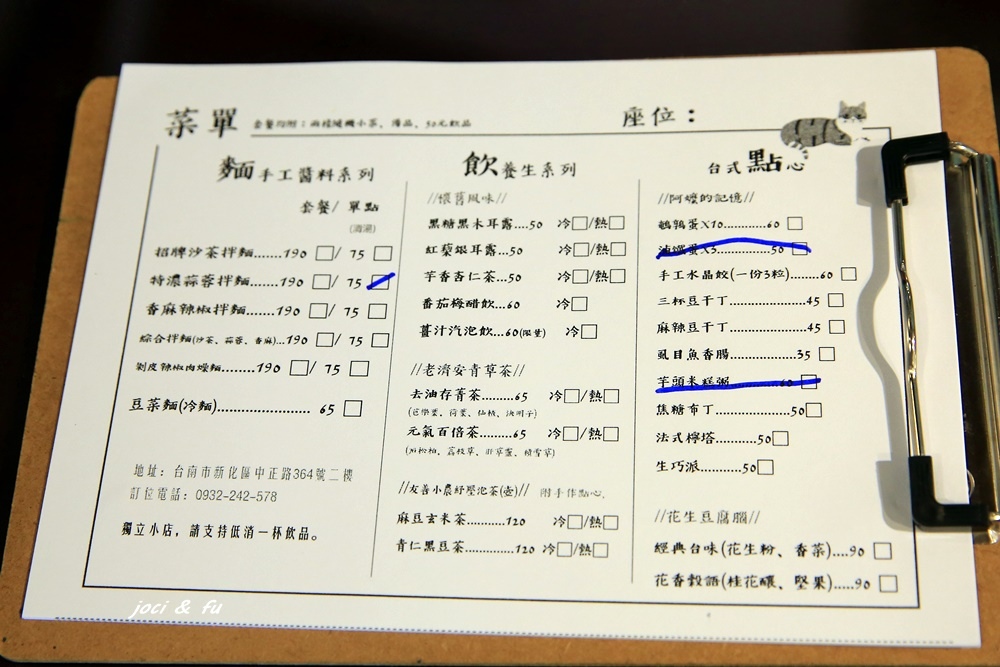 菜單 套餐均附：兩樣隨機小菜、湯品、50元飲品
座位：
麵 手工醬料系列
套餐/ 單點
(清湯)
招牌沙茶拌麵......190 / 75
特濃蒜蓉拌麵.......190 / 75
香麻辣椒拌麵.......190 / 75
綜合拌麵(沙茶、蒜蓉、香麻)...190 / 75
剝皮辣椒肉燥麵........190 / 75
豆菜麵(冷麵)..................... 65
地址：台南市新化區中正路364號二樓
訂位電話：0932-242-578
獨立小店，請支持低消一杯飲品。
飲 養生系列
//懷舊風味//
黑糖黑木耳露....50 冷/熱
紅藜銀耳露.....50 冷/熱
芋香杏仁茶.....50 冷/熱
番茄梅醋飲...60 冷
薑汁汽泡飲...60(限量) 冷
//老濟安青草茶//
去油存菁茶........65 冷/熱
(芭樂葉、荷葉、仙楂、決明子)
元氣百倍茶........65 冷/熱
//友善小農紓壓泡茶(壺)// 附手作點心。
麻豆玄米茶..........120 冷/熱
青仁黑豆茶..........120 冷/熱
台式點心
//阿嬤的記憶//
鵪鶉蛋X10.........60
滷鐵蛋X3..............50
手工水晶餃(一份3粒).......60
三杯豆干丁...............45
麻辣豆干丁...............45
虱目魚香腸.............35
芋頭米糕粥..........60
焦糖布丁...............50
法式檸塔.........50
生巧派.........50
//花生豆腐腦//
經典台味(花生粉、香菜)....90
花香穀語(桂花釀、堅果).....90
joci & fu